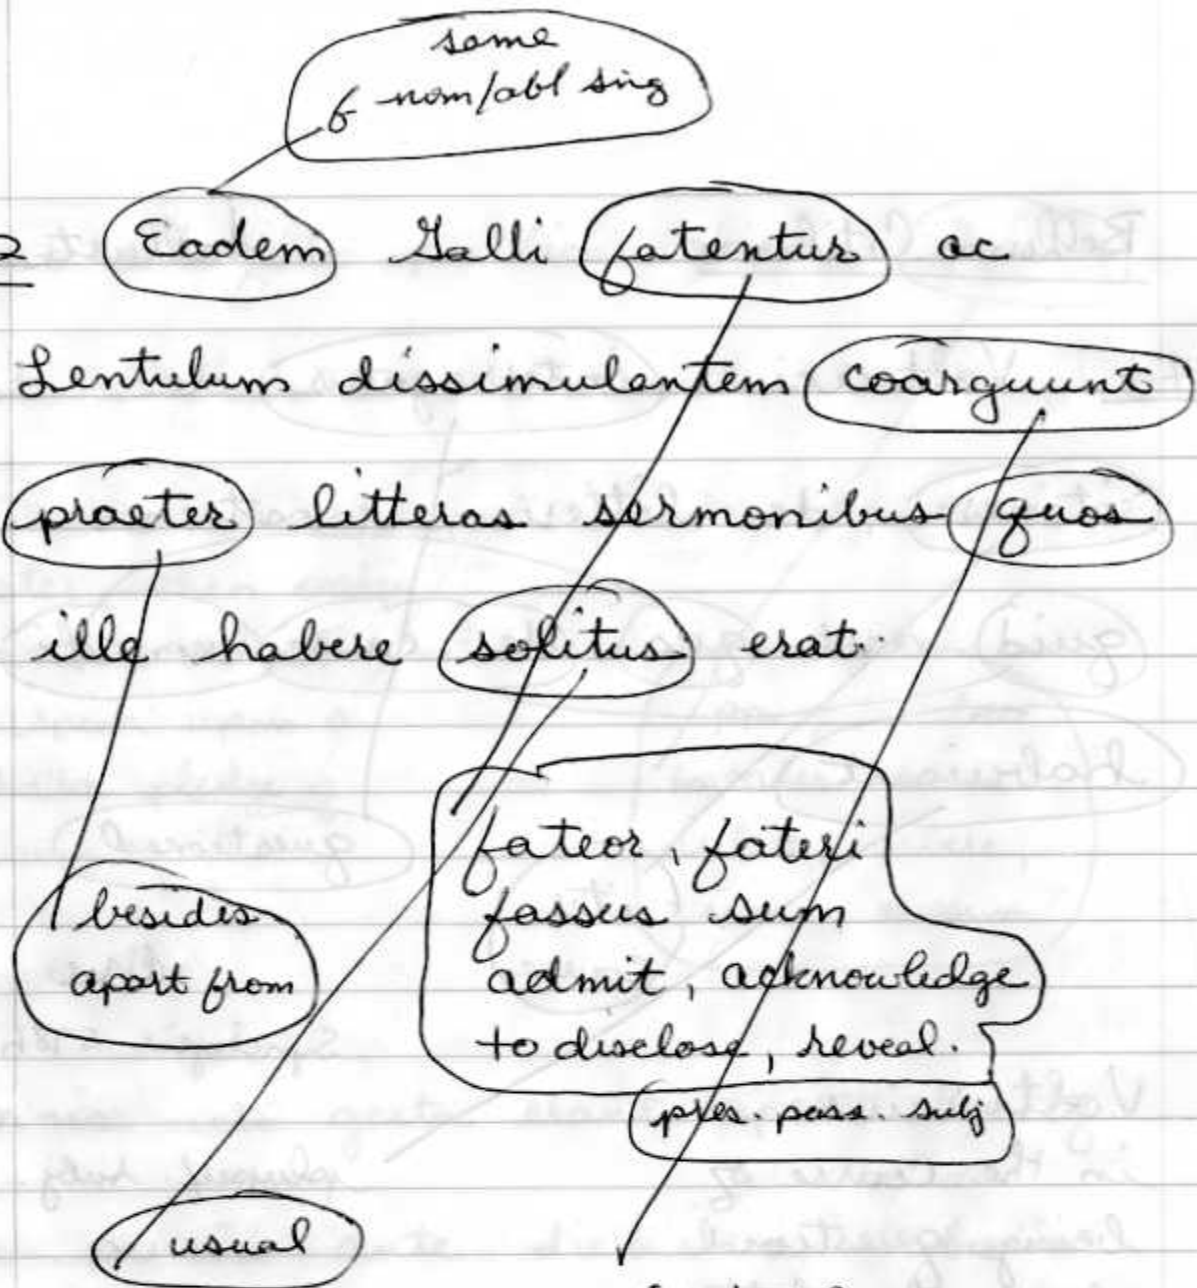 same
f nom/abl sing
2 Eadem Galli fatentur ac
Lentulum dissimulantem coarguunt
praeter litteras sermonibus quos
ille habere solitus erat.
fateor, fateri
fassus sum
admit, acknowledge
to disclose, reveal.
pres. pass. subj
besides
apart from
usual